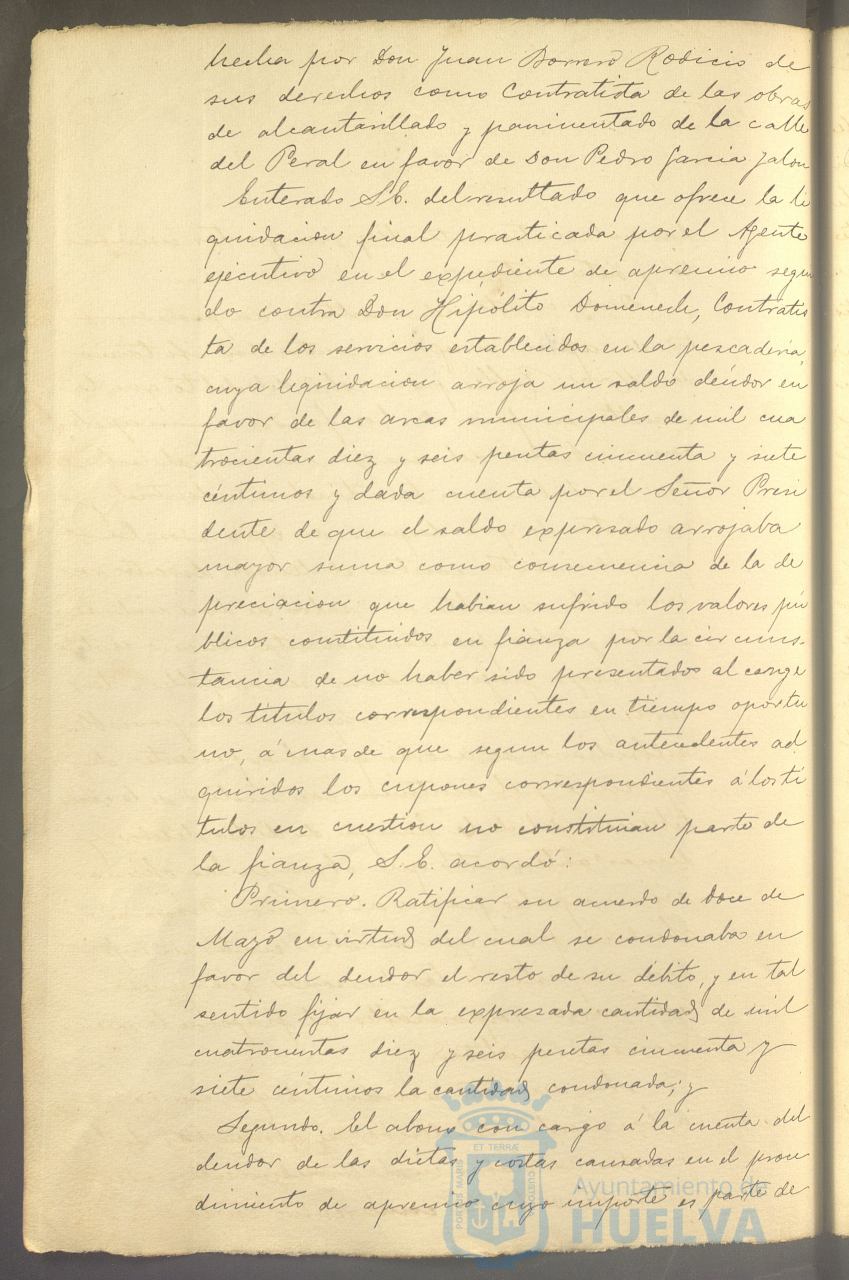 hecha por Don Juan Borrero Rodicio de
sus derechos como Contratista de las obras
de alcantarillado y pavimentado de la calle
del Peral en favor de Don Pedro Garcia Jalon
Enterado S.E. del resultado que ofrece la li
quidacion final practicada por el Agente
ejecutivo en el expediente de apremio segui
do contra Don Hipólito Domenech, Contratis
ta de los servicios establecidos en la pescaderia,
cuya liquidacion arroja un saldo deudor en
favor de las arcas municipales de mil cua
trocientas diez y seis pesetas cincuenta y siete
céntimos y dada cuenta por el Señor Presi
dente de que el saldo expresado arrojaba
mayor suma como consecuencia de la de
preciacion que habian sufrido los valores pú
blicos constituidos en fianza por la circuns-
tancia de no haber sido presentados al cange
los titulos correspondientes en tiempo oportu
no, á mas de que segun los antecedentes ad
quiridos los cupones correspondientes á los ti
tulos en cuestion no constituian parte de
la fianza, S.E. acordó:
Primero. Ratificar su acuerdo de doce de
Mayo en virtud del cual se condonaba en
favor del deudor el resto de su débito, y en tal
sentido fijar en la expresada cantidad de mil
cuatrocientas diez y seis pesetas cincuenta y
siete céntimos la cantidad condonada; y
Segundo. El abono con cargo á la cuenta del
deudor de las dietas y costas causadas en el proce
dimiento de apremio cuyo importe es parte de
PORTUS MARIS ET TERRÆ CUSTODIA
Ayuntamiento de
HUELVA